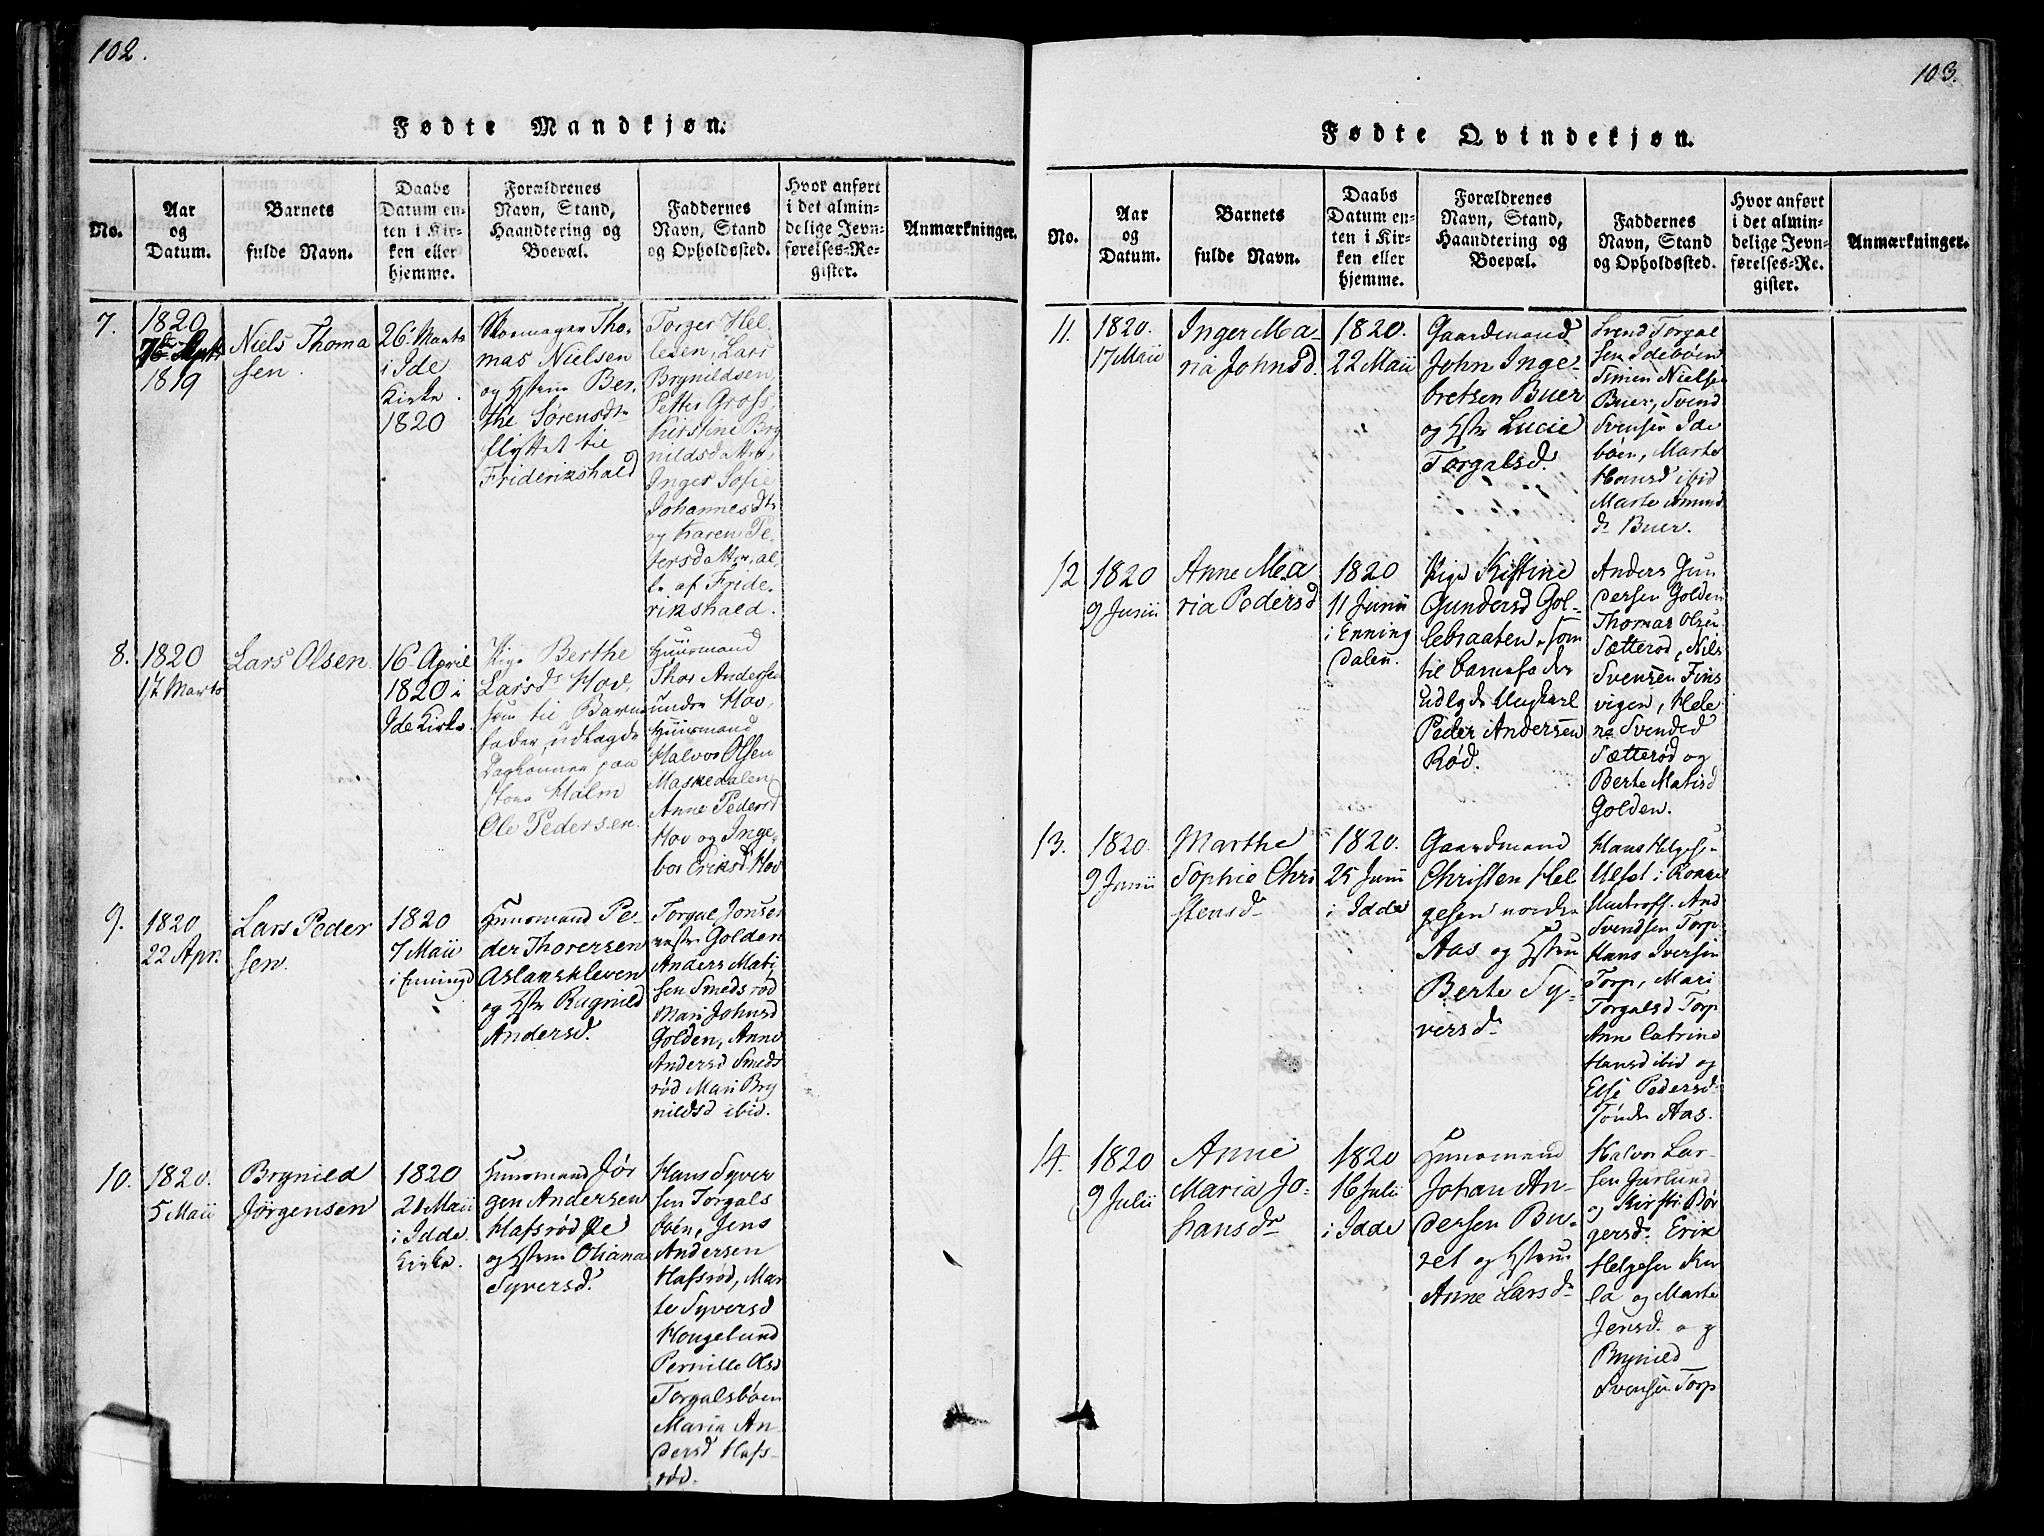 102.
Fødte Mandkjøn.
No.
Aar
og
Datum.
Barnets
fulde Navn.
Daabs
Datum en-
ten i Kir-
ken eller
hjemme.
Forældrenes
Navn, Stand,
Haandtering og
Boepæl.
Faddernes
Navn, Stand
og Opholdssted.
Hvor anført
i det almin-
delige Jevn-
førelses-Re-
gister.
Anmærkninger.
7.
1820
7de Septr
1819
Niels Thoma
sen.
26 Marts
i Ide
Kirke.
1820
Skomager Tho-
mas Nielsen
og Hstru Ber-
the Sørensdtr
flyttet til
Friderikshald
Torger Hel-
lesen, Lars
Brynildsen,
Petter Gross,
Kirstine Bry
nildsdatter,
Inger Sofie
Johannesdtr
og Karen Pe-
tersdatter, al-
le af Fride-
rikshald.
8.
1820
17 Marts
Lars Olsen.
16 April
1820 i
Ide Kirke.
Pige Berthe
Larsd Hov,
som til Barne
fader udlagde
paa
Holm
Ole Pedersen.
Huusmand
Thor Andersen
undre Hov,
Huusmand
Halvor Olsen
Maskedalen,
Anne Pedersd
Hov og Inge-
bor Eriksd Hov
9.
1820
22 Apr.
Lars Peder
sen.
1820
7 Maii
i Enningd
Huusmand Pe-
der Thoresen
Aslakskleven
og Hstr Ragnild
Andersd.
Torgal Jonsen
Golden
Anders Mati
sen Smedsrød
Mari Johnsd
Golden, Anne
Andersd Smeds
rød Mari Bry
nildsd ibid.
10.
1820.
5 Maii
Brynild
Jørgensen
1820
21 Maii
i Idde
Kirke.
Huusmand Jør
gen Andersen
Hafsrød Eie
og Hstru Oliana
Syversd.
Hans Syver
sen Torgals
bøen, Jens
Andersen
Hafsrød, Mar
te Syversd
Hougelund
Pernille Olsd
Torgalsbøen
Maria An-
dersd Hafs-
rød.
103.
Fødte Qvindekjøn.
No.
Aar
og
Datum.
Barnets
fulde Navn.
Daabs
Datum en-
ten i Kir-
ken eller
hjemme.
Forældrenes
Navn, Stand,
Haandtering og
Boepæl.
Faddernes
Navn, Stand
og Opholdssted.
Hvor anført
i det almin-
delige Jevn-
førelses-Re-
gister.
Anmærkninger.
11.
1820.
17 Maii
Inger Ma-
ria Johnsd.
1820.
22 Maii
Gaardmand
John Inge-
bretsen Buer
og Hstr Lucie
Torgalsd.
Svend Torgal
sen Idebøen
Simen Nielsen
Buer, Svend
Svensen Ide
bøen, Marte
Hansd ibid
Marte Amund
d. Buer.
12
1820
9 Junii
Anne Ma
ria Pedersd
1820
11 Junii
i Enning
dalen.
Pige Kistine
Gundersd Gol-
lebraaten, som
til Barnefader
udlgde Ungkarl
Peder Andersen
Rød.
Anders Gun
dersen Golden
Thomas Olsen
Sætterød, Nils
Svensen Fins
vigen, Hele
na Svendsd
Sætterød og
Berte Matisd
Golden.
13.
1820.
9 Junii
Marthe
Sophie Chri
stensd
1820.
25 Junii
i Idde
Gaardmand
Christen Hel
gesen norden
Aas og Hstru
Berte Sy-
versd
Hans Helgesen
Ulfat i Rokke
And
Svendsen Torp
Hans Iversen
Torp, Mari
Torgalsd Torp
Anne Catrine
Hansd ibid og
Else Pedersd
Tønde Aas.
14.
1820
9 Julii
Anne
Maria Jo-
hansdr
1820
16 Julii
i Idde
Huusmand
Johan An-
dersen Bu-
ret og Hstru
Anne Larsdr
Halvor Lar-
sen Gurlund
og Kirsti Bør
gersd. Erik
Helgesen Ku
la og Marte
Jensd. og
Brynild
Svensen Torp